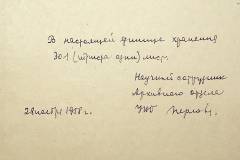 В настоящей единице хранения
301 (триста один) лист.
Научный сотрудник
Архивного отдела
28 ноября 1958 г.